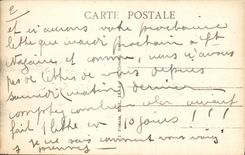 2
CARTE POSTALE
et n'aurons votre prochaine
lettre que mardi prochain à St
Nazaire et comme nous n'avons
pas de lettres de vous depuis
samedi (matin) dernier
comptez combien
fait 1 lettre en 10 jours !!!
Je ne sais comment vous